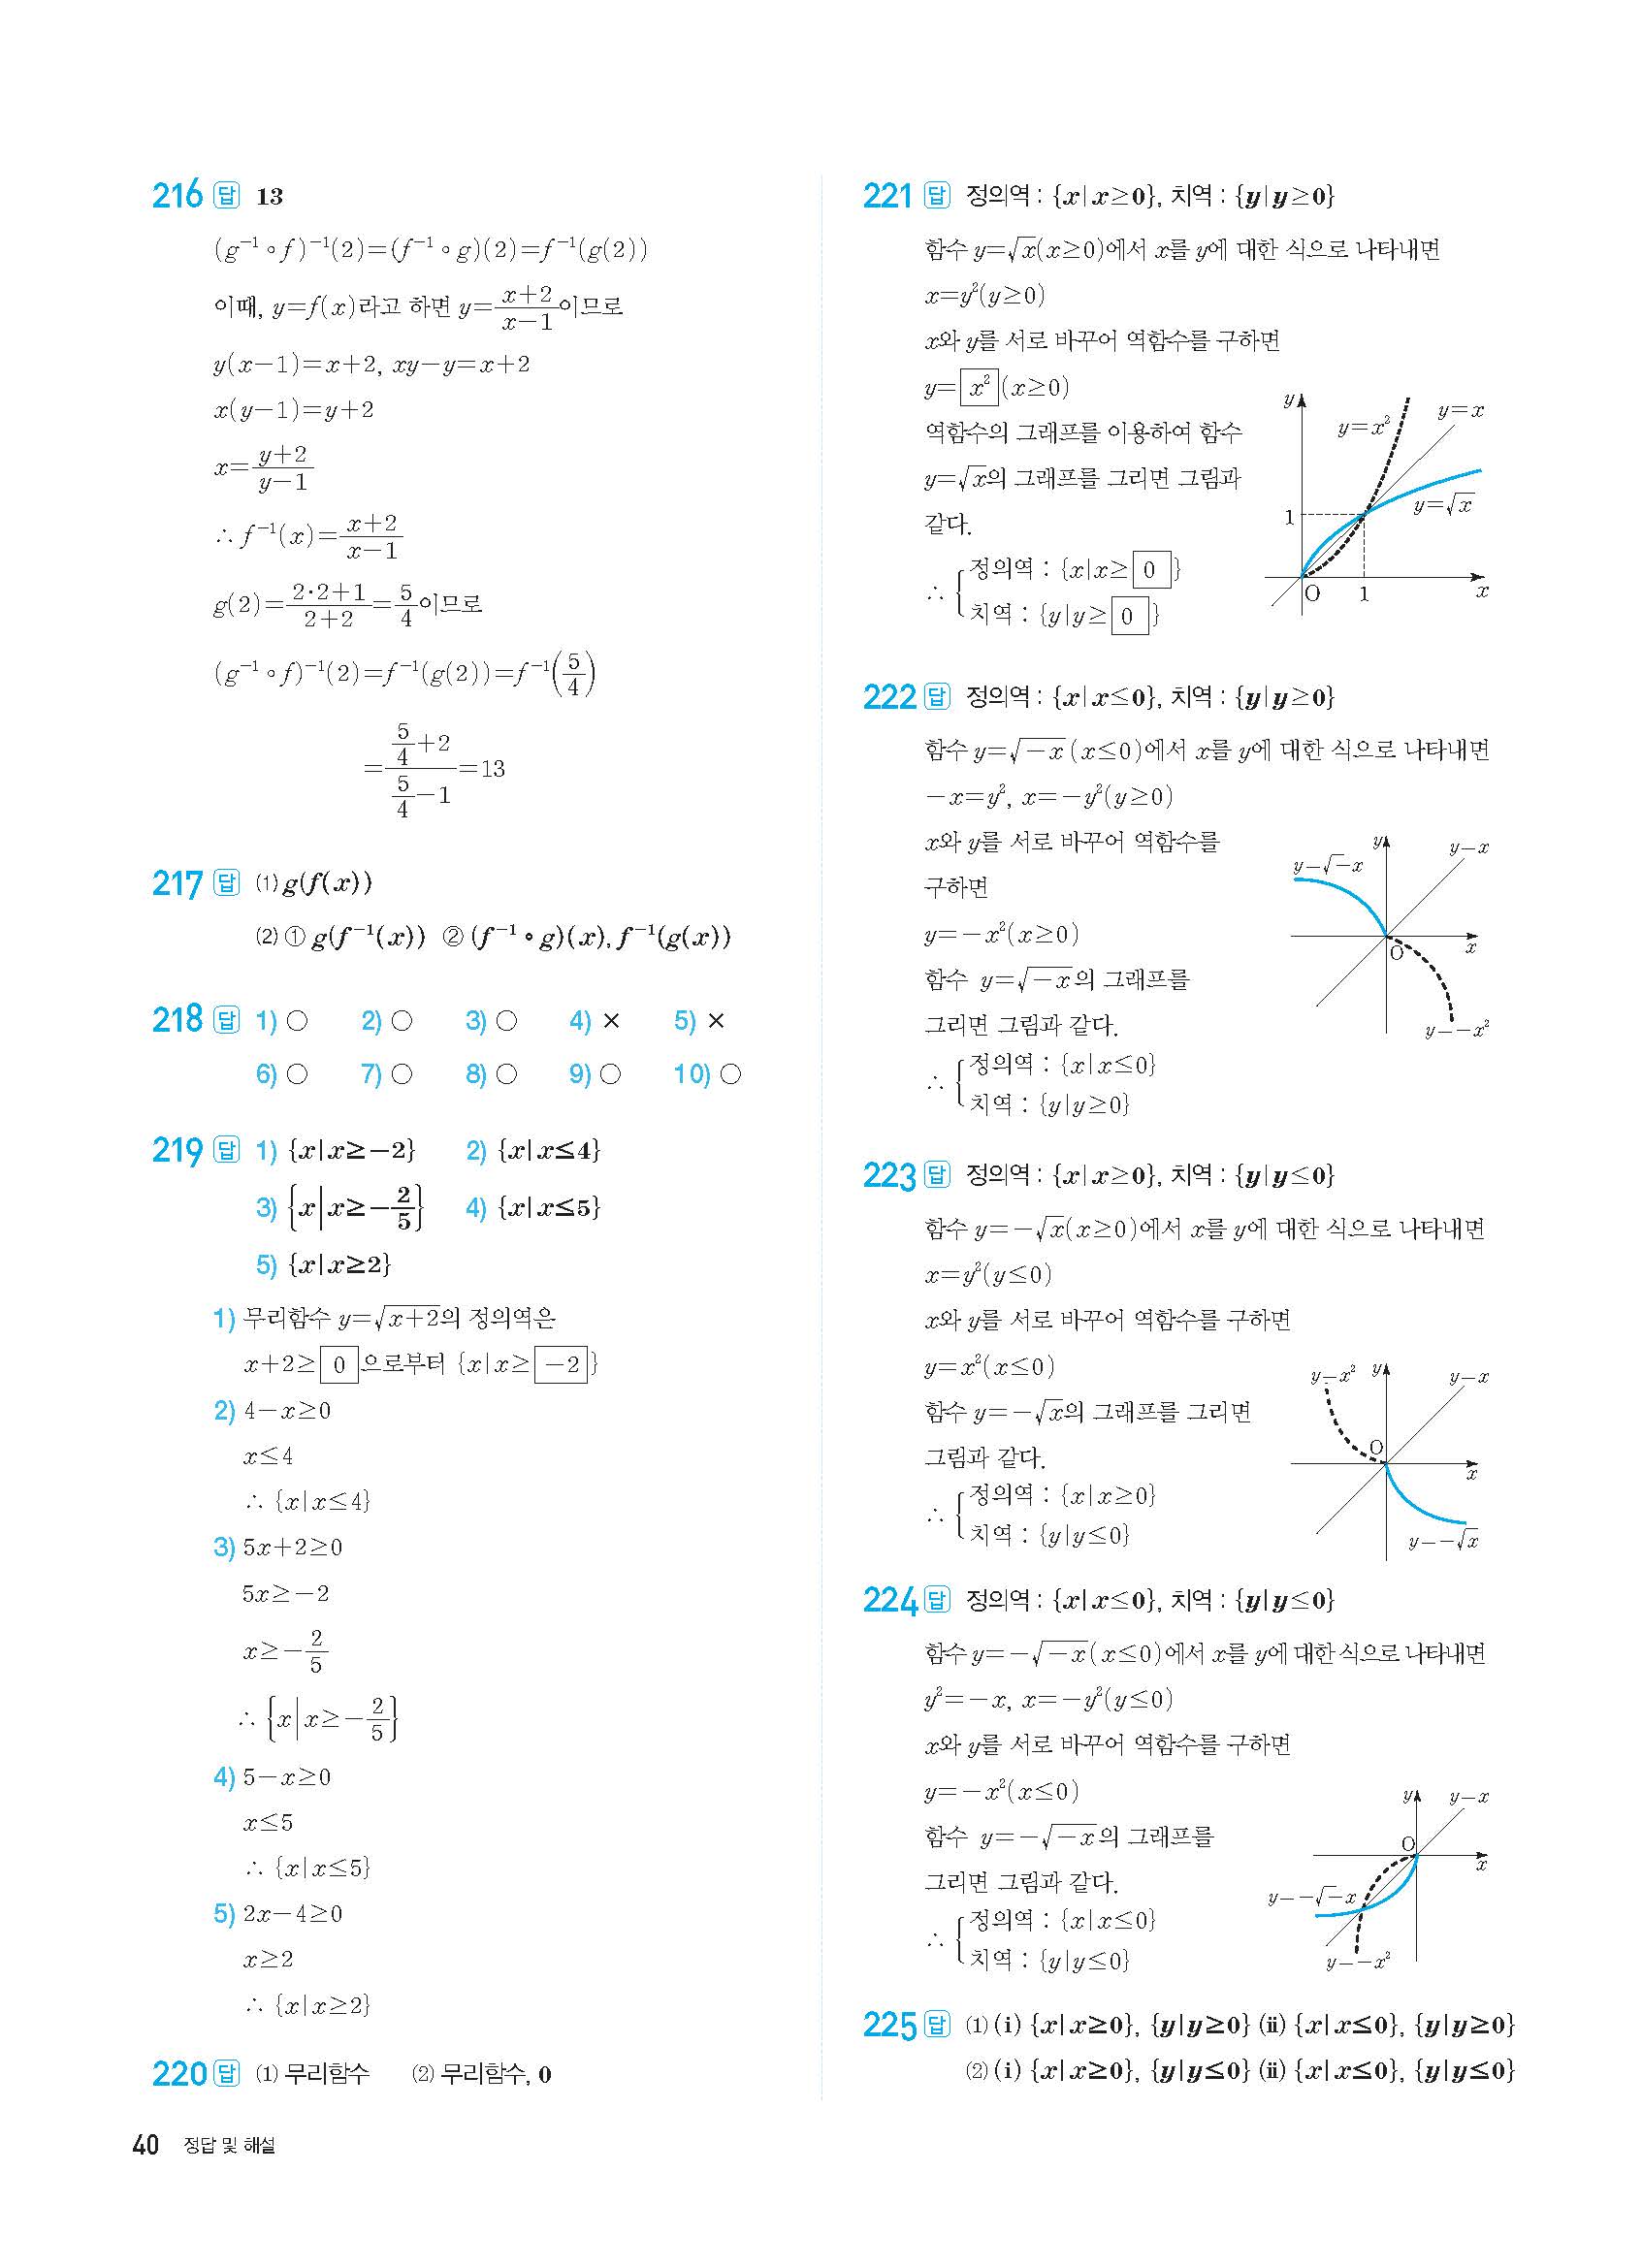 216 답 13
(g⁻¹∘f)⁻¹(2)=(f⁻¹∘g)(2)=f⁻¹(g(2))
이때, y=f(x)라고 하면 y=(x+2)/(x−1)이므로
y(x−1)=x+2, xy−y=x+2
x(y−1)=y+2
x=(y+2)/(y−1)
∴ f⁻¹(x)=(x+2)/(x−1)
g(2)=(2·2+1)/(2+2)=5/4이므로
(g⁻¹∘f)⁻¹(2)=f⁻¹(g(2))=f⁻¹(5/4)
=(5/4+2)/(5/4−1)=13
217 답 ⑴ g(f(x))
⑵ ① g(f⁻¹(x)) ② (f⁻¹∘g)(x), f⁻¹(g(x))
218 답 1) ○ 2) ○ 3) ○ 4) × 5) ×
6) ○ 7) ○ 8) ○ 9) ○ 10) ○
219 답 1) {x|x≥−2} 2) {x|x≤4}
3) {x|x≥−2/5} 4) {x|x≤5}
5) {x|x≥2}
1) 무리함수 y=√(x+2)의 정의역은
x+2≥ 0 으로부터 {x|x≥ −2 }
2) 4−x≥0
x≤4
∴ {x|x≤4}
3) 5x+2≥0
5x≥−2
x≥−2/5
∴ {x|x≥−2/5}
4) 5−x≥0
x≤5
∴ {x|x≤5}
5) 2x−4≥0
x≥2
∴ {x|x≥2}
220 답 ⑴ 무리함수 ⑵ 무리함수, 0
221 답 정의역 : {x|x≥0}, 치역 : {y|y≥0}
함수 y=√x(x≥0)에서 x를 y에 대한 식으로 나타내면
x=y²(y≥0)
x와 y를 서로 바꾸어 역함수를 구하면
y= x² (x≥0)
역함수의 그래프를 이용하여 함수
y=√x의 그래프를 그리면 그림과
같다.
∴ { 정의역 : {x|x≥ 0 }
치역 : {y|y≥ 0 }
y
y=x²
y=x
y=√x
1
O 1 x
222 답 정의역 : {x|x≤0}, 치역 : {y|y≥0}
함수 y=√(−x) (x≤0)에서 x를 y에 대한 식으로 나타내면
−x=y², x=−y²(y≥0)
x와 y를 서로 바꾸어 역함수를
구하면
y=−x²(x≥0)
함수 y=√(−x)의 그래프를
그리면 그림과 같다.
∴ { 정의역 : {x|x≤0}
치역 : {y|y≥0}
y
y=√−x
y=x
O x
y=−x²
223 답 정의역 : {x|x≥0}, 치역 : {y|y≤0}
함수 y=−√x(x≥0)에서 x를 y에 대한 식으로 나타내면
x=y²(y≤0)
x와 y를 서로 바꾸어 역함수를 구하면
y=x²(x≤0)
함수 y=−√x의 그래프를 그리면
그림과 같다.
∴ { 정의역 : {x|x≥0}
치역 : {y|y≤0}
y=x² y y=x
O
x
y=−√x
224 답 정의역 : {x|x≤0}, 치역 : {y|y≤0}
함수 y=−√(−x)(x≤0)에서 x를 y에 대한 식으로 나타내면
y²=−x, x=−y²(y≤0)
x와 y를 서로 바꾸어 역함수를 구하면
y=−x²(x≤0)
함수 y=−√(−x)의 그래프를
그리면 그림과 같다.
∴ { 정의역 : {x|x≤0}
치역 : {y|y≤0}
y y=x
O
x
y=−√−x
y=−x²
225 답 ⑴ (ⅰ) {x|x≥0}, {y|y≥0} (ⅱ) {x|x≤0}, {y|y≥0}
⑵ (ⅰ) {x|x≥0}, {y|y≤0} (ⅱ) {x|x≤0}, {y|y≤0}
40 정답 및 해설